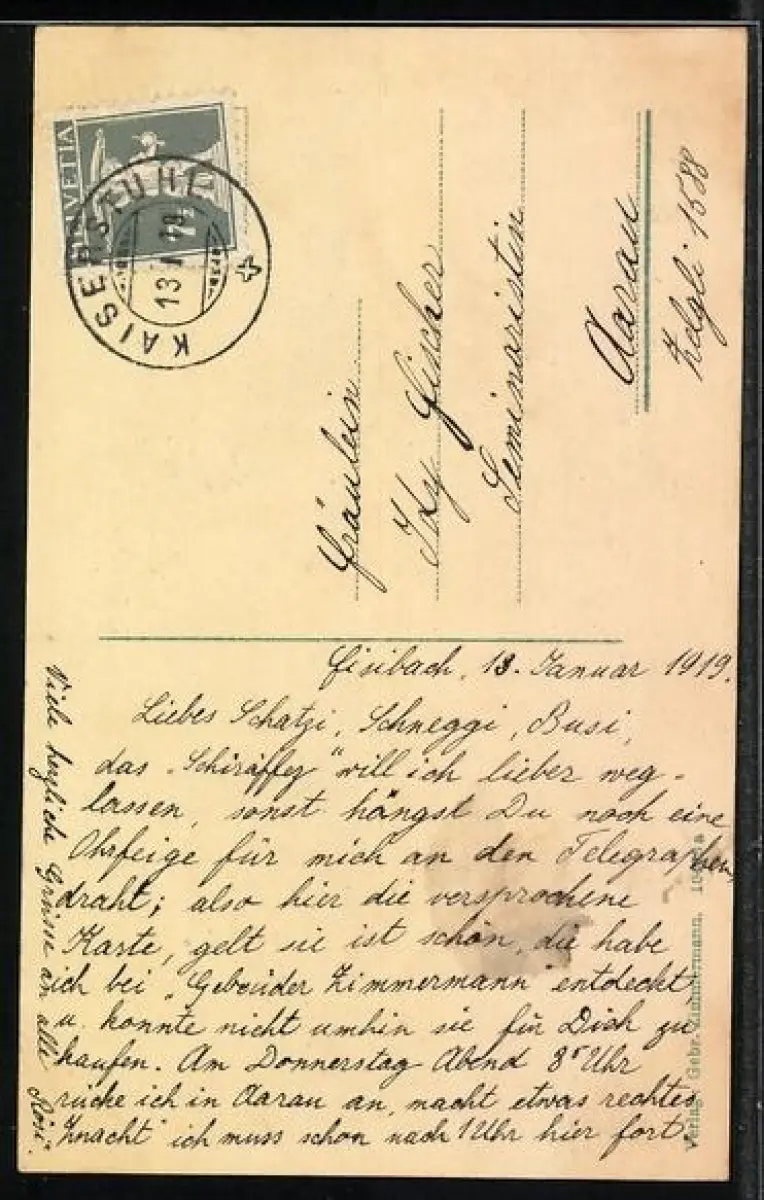 HELVETIA
7½
KAISERSTUHL
13.I.19
Fräulein
Idy Fischer
Seminaristin
Aarau
Zelgli 1588
Fisibach, 13. Januar 1919.
Liebes Schatzi, Schneggi, Busi,
das „Schiräffli" will ich lieber weg-
lassen, sonst hängst Du noch eine
Ohrfeige für mich an den Telegraphen-
draht; also hier die versprochene
Karte, gelt sie ist schön, die habe
ich bei „Gebrüder Zimmermann" entdeckt
u. konnte nicht umhin sie für Dich zu
kaufen. Am Donnerstag Abend Uhr
rücke ich in Aarau an, macht etwas rechtes
Znacht ich muss schon nach 1 Uhr hier fort.
Viele herzliche Grüsse an alle
Rösi.
Verlag Gebr. Zimmermann,